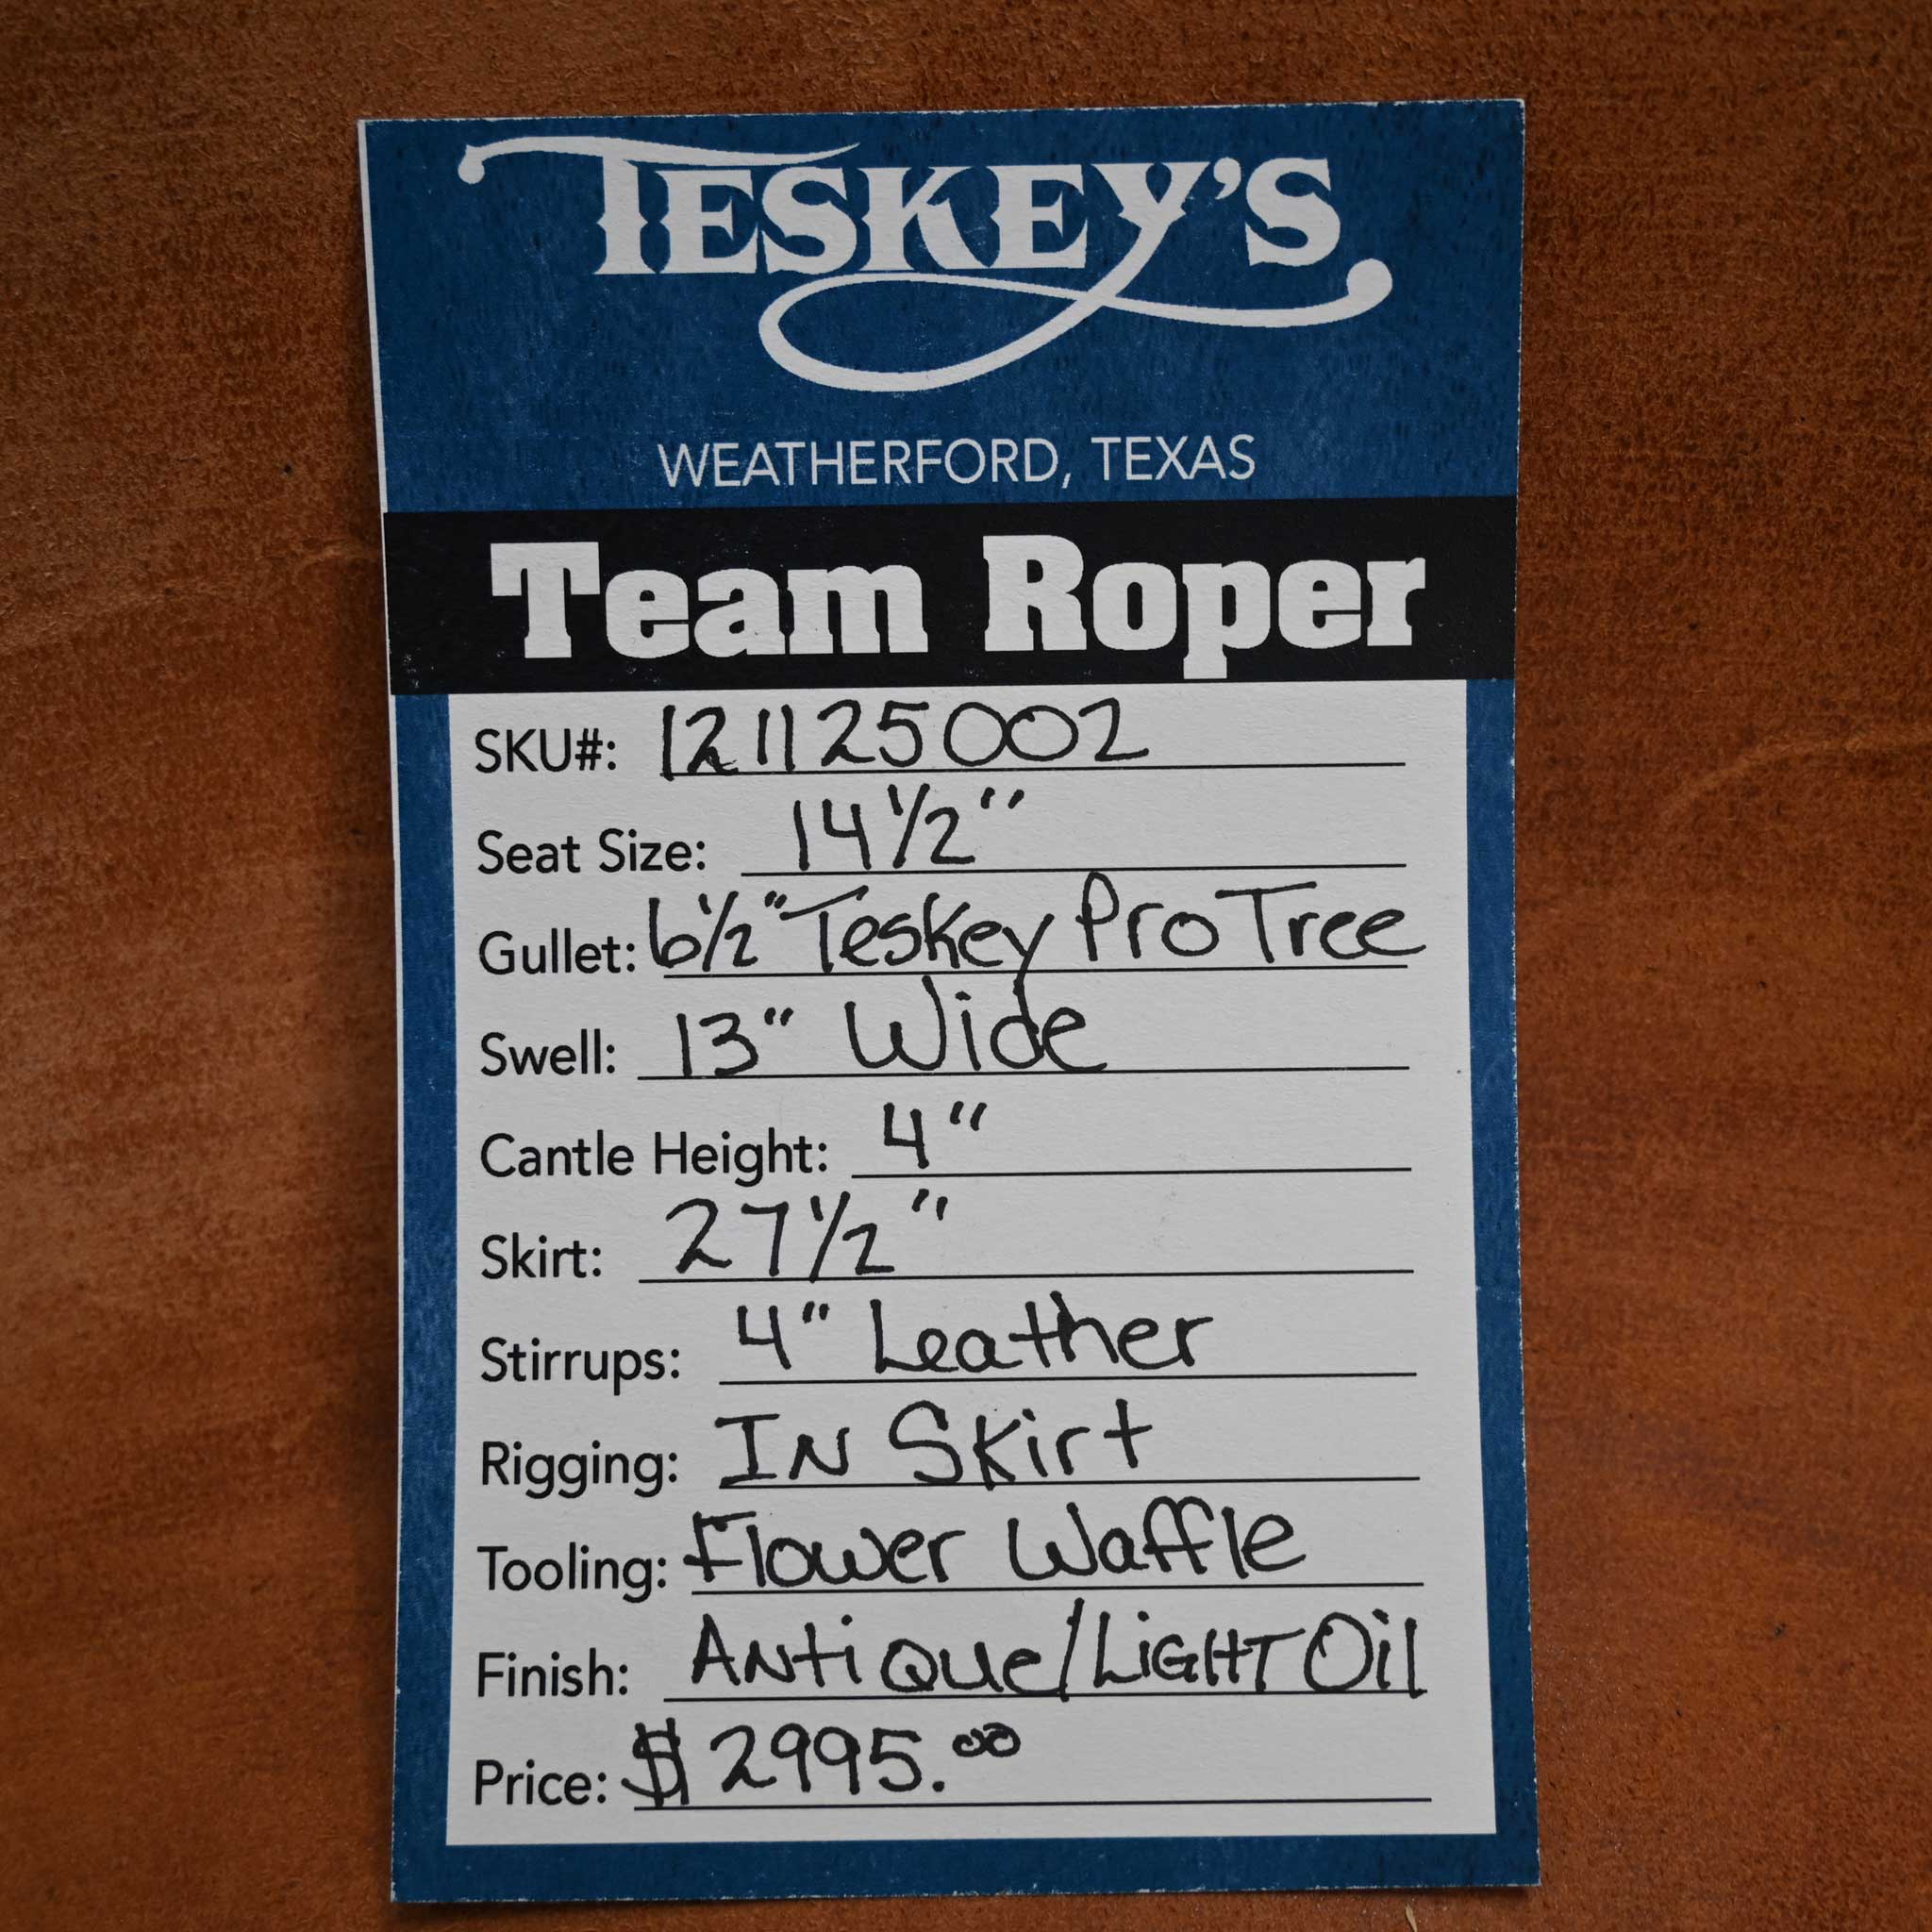 TESKEY'S
WEATHERFORD, TEXAS
Team Roper
SKU#: 121125002
Seat Size: 14 1/2"
Gullet: 6 1/2" Teskey Pro Tree
Swell: 13" Wide
Cantle Height: 4"
Skirt: 27 1/2"
Stirrups: 4" Leather
Rigging: IN Skirt
Tooling: Flower Waffle
Finish: ANtiQue/LiGHT Oil
Price: $2995.00